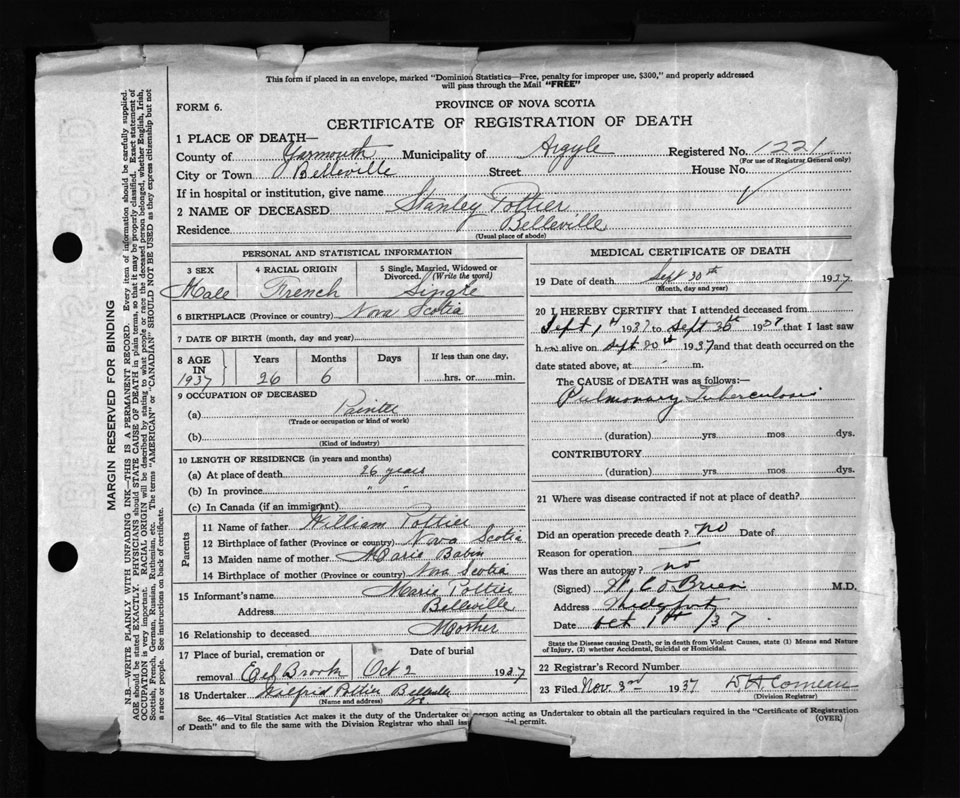 This form if placed in an envelope, marked "Dominion Statistics—Free, penalty for improper use, $300," and properly addressed
will pass through the Mail "FREE"
FORM 6.
PROVINCE OF NOVA SCOTIA
CERTIFICATE OF REGISTRATION OF DEATH
1 PLACE OF DEATH—
County of Yarmouth Municipality of Argyle Registered No. 1221
(For use of Registrar General only)
City or Town Belleville Street House No.
If in hospital or institution, give name
2 NAME OF DECEASED Stanley Pottier
Residence Belleville
(Usual place of abode)
PERSONAL AND STATISTICAL INFORMATION
3 SEX 4 RACIAL ORIGIN 5 Single, Married, Widowed or Divorced. (Write the word)
Male French Single
6 BIRTHPLACE (Province or country) Nova Scotia
7 DATE OF BIRTH (month, day and year)
8 AGE IN 1937 Years Months Days If less than one day,
26 6 hrs. or min.
9 OCCUPATION OF DECEASED
(a) Painter
(Trade or occupation or kind of work)
(b)
(Kind of industry)
10 LENGTH OF RESIDENCE (in years and months)
(a) At place of death 26 years
(b) In province " "
(c) In Canada (if an immigrant)
Parents
11 Name of father William Pottier
12 Birthplace of father (Province or country) Nova Scotia
13 Maiden name of mother Marie Babin
14 Birthplace of mother (Province or country) Nova Scotia
15 Informant's name Marie Pottier
Address Belleville
16 Relationship to deceased Mother
17 Place of burial, cremation or removal Eel Brook Date of burial Oct 2 1937
18 Undertaker Wilfrid Pottier Belleville
(Name and address)
MEDICAL CERTIFICATE OF DEATH
19 Date of death Sept 30th 1937
(Month, day and year)
20 I HEREBY CERTIFY that I attended deceased from
Sept 1st 1937 to Sept 30th 1937 that I last saw
him alive on Sept 30th 1937 and that death occurred on the
date stated above, at m.
The CAUSE of DEATH was as follows:—
Pulmonary Tuberculosis
(duration) yrs. mos. dys.
CONTRIBUTORY
(duration) yrs. mos. dys.
21 Where was disease contracted if not at place of death?
Did an operation precede death? no Date of
Reason for operation
Was there an autopsy? no
(Signed) W. C. O'Brien M.D.
Address
Date Oct 1st /37
State the Disease causing Death, or in death from Violent Causes, state (1) Means and Nature
of Injury, (2) whether Accidental, Suicidal or Homicidal.
22 Registrar's Record Number
23 Filed Nov. 3rd 1937 D A Comeau
(Division Registrar)
Sec. 46—Vital Statistics Act makes it the duty of the Undertaker or person acting as Undertaker to obtain all the particulars required in the "Certificate of Registration
of Death" and to file the same with the Division Registrar who shall permit. (OVER)
MARGIN RESERVED FOR BINDING
N.B.—WRITE PLAINLY WITH UNFADING INK—THIS IS A PERMANENT RECORD. Every item of information should be carefully supplied.
AGE should be stated EXACTLY. PHYSICIANS should STATE CAUSE OF DEATH in plain terms, so that it may be properly classified. Exact statement of
OCCUPATION is very important. RACIAL ORIGIN will be described by stating to what people or race the deceased person belonged, whether English, Irish,
Scottish, French, German, Russian, Ruthenian, etc. The terms "AMERICAN" or "CANADIAN" SHOULD NOT BE USED as they express citizenship but not
a race or people. See instructions on back of certificate.